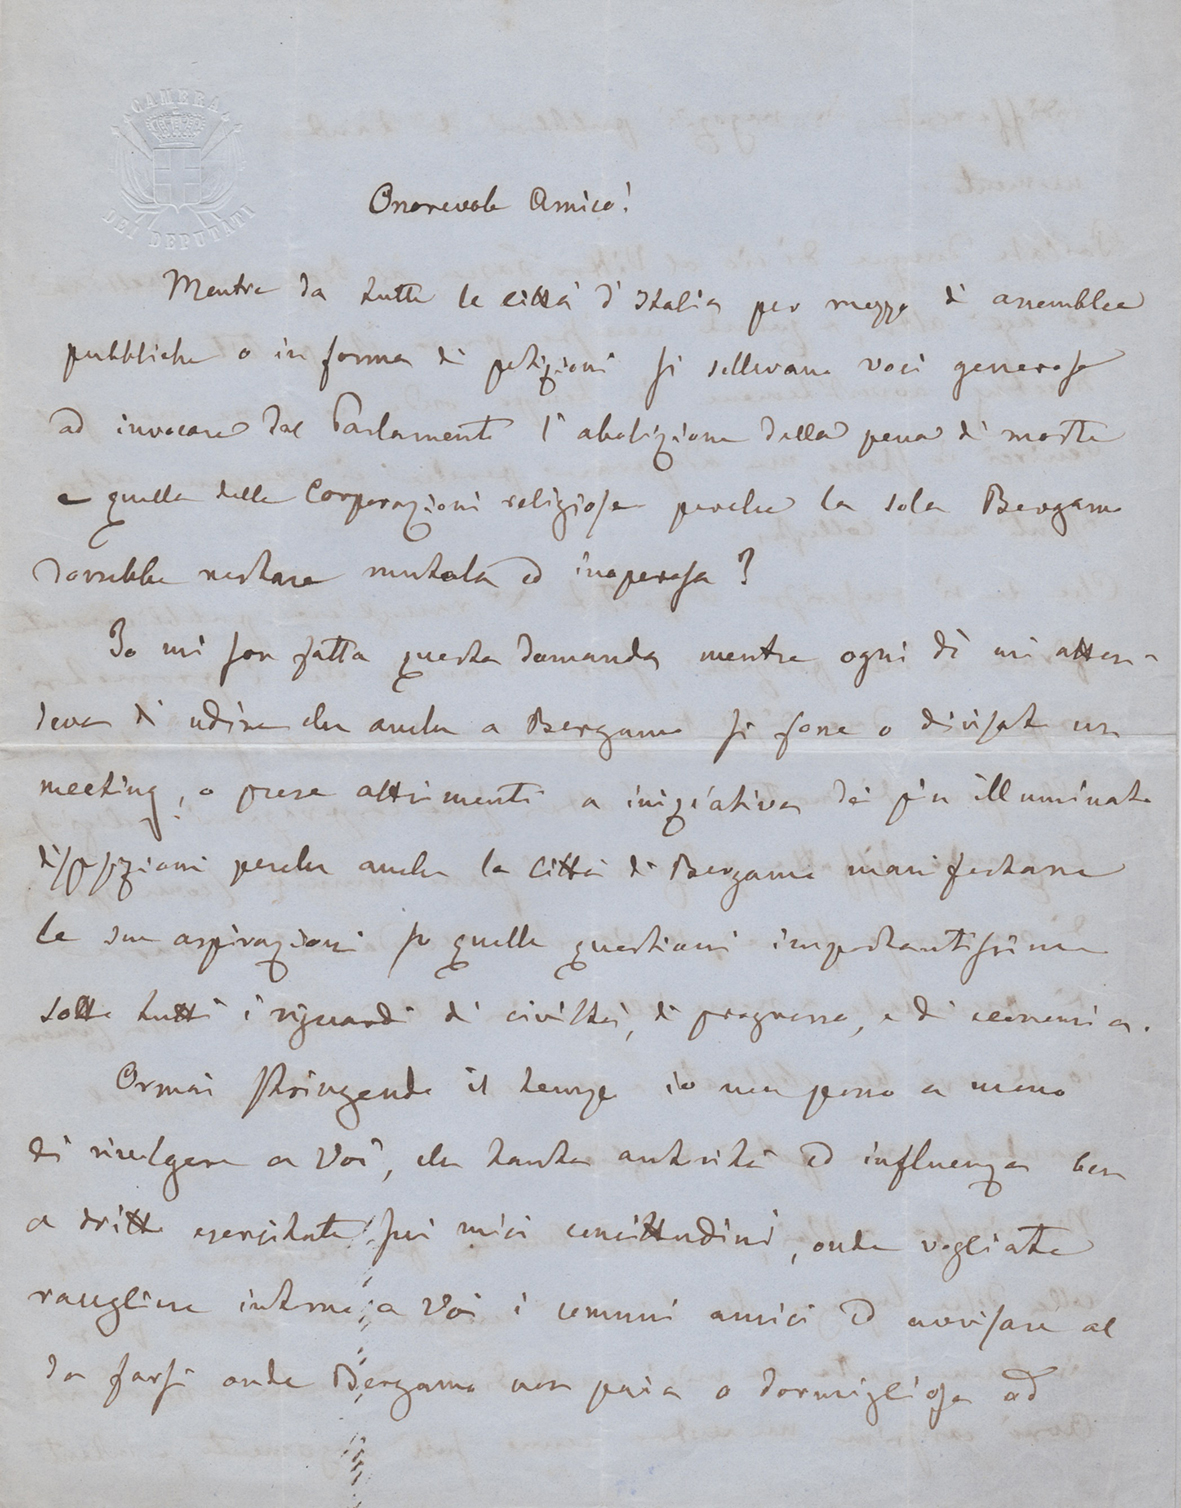 CAMERA
DEI DEPUTATI
Onorevole Amico!
Mentre da tutte le città d'Italia per mezzo di assemblee
pubbliche o in forma di petizioni si sollevano voci generose
ad invocare dal Parlamento l'abolizione della pena di morte
e quella delle Corporazioni religiose perche la sola Bergamo
dovrebbe restare mutola ed inoperosa?
Io mi son fatta questa domanda mentre ogni dì mi atten-
deva di udire che anche a Bergamo si fosse o divisato un
meeting, o prese altrimenti a iniziativa dei più illuminati
disposizioni perche anche la città di Bergamo manifestasse
le sue aspirazioni su quelle questioni importantissime
sotto tutti i riguardi di civiltà, di progresso, e di economia.
Ormai stringendo il tempo io non posso a meno
di rivolgere a Voi, che tanta autorità ed influenza ben
a dritto esercitate sui miei concittadini, onde vogliate
raccogliere intorno a Voi i comuni amici ed avvisare al
da farsi onde Bergamo non paia o dormigliosa od